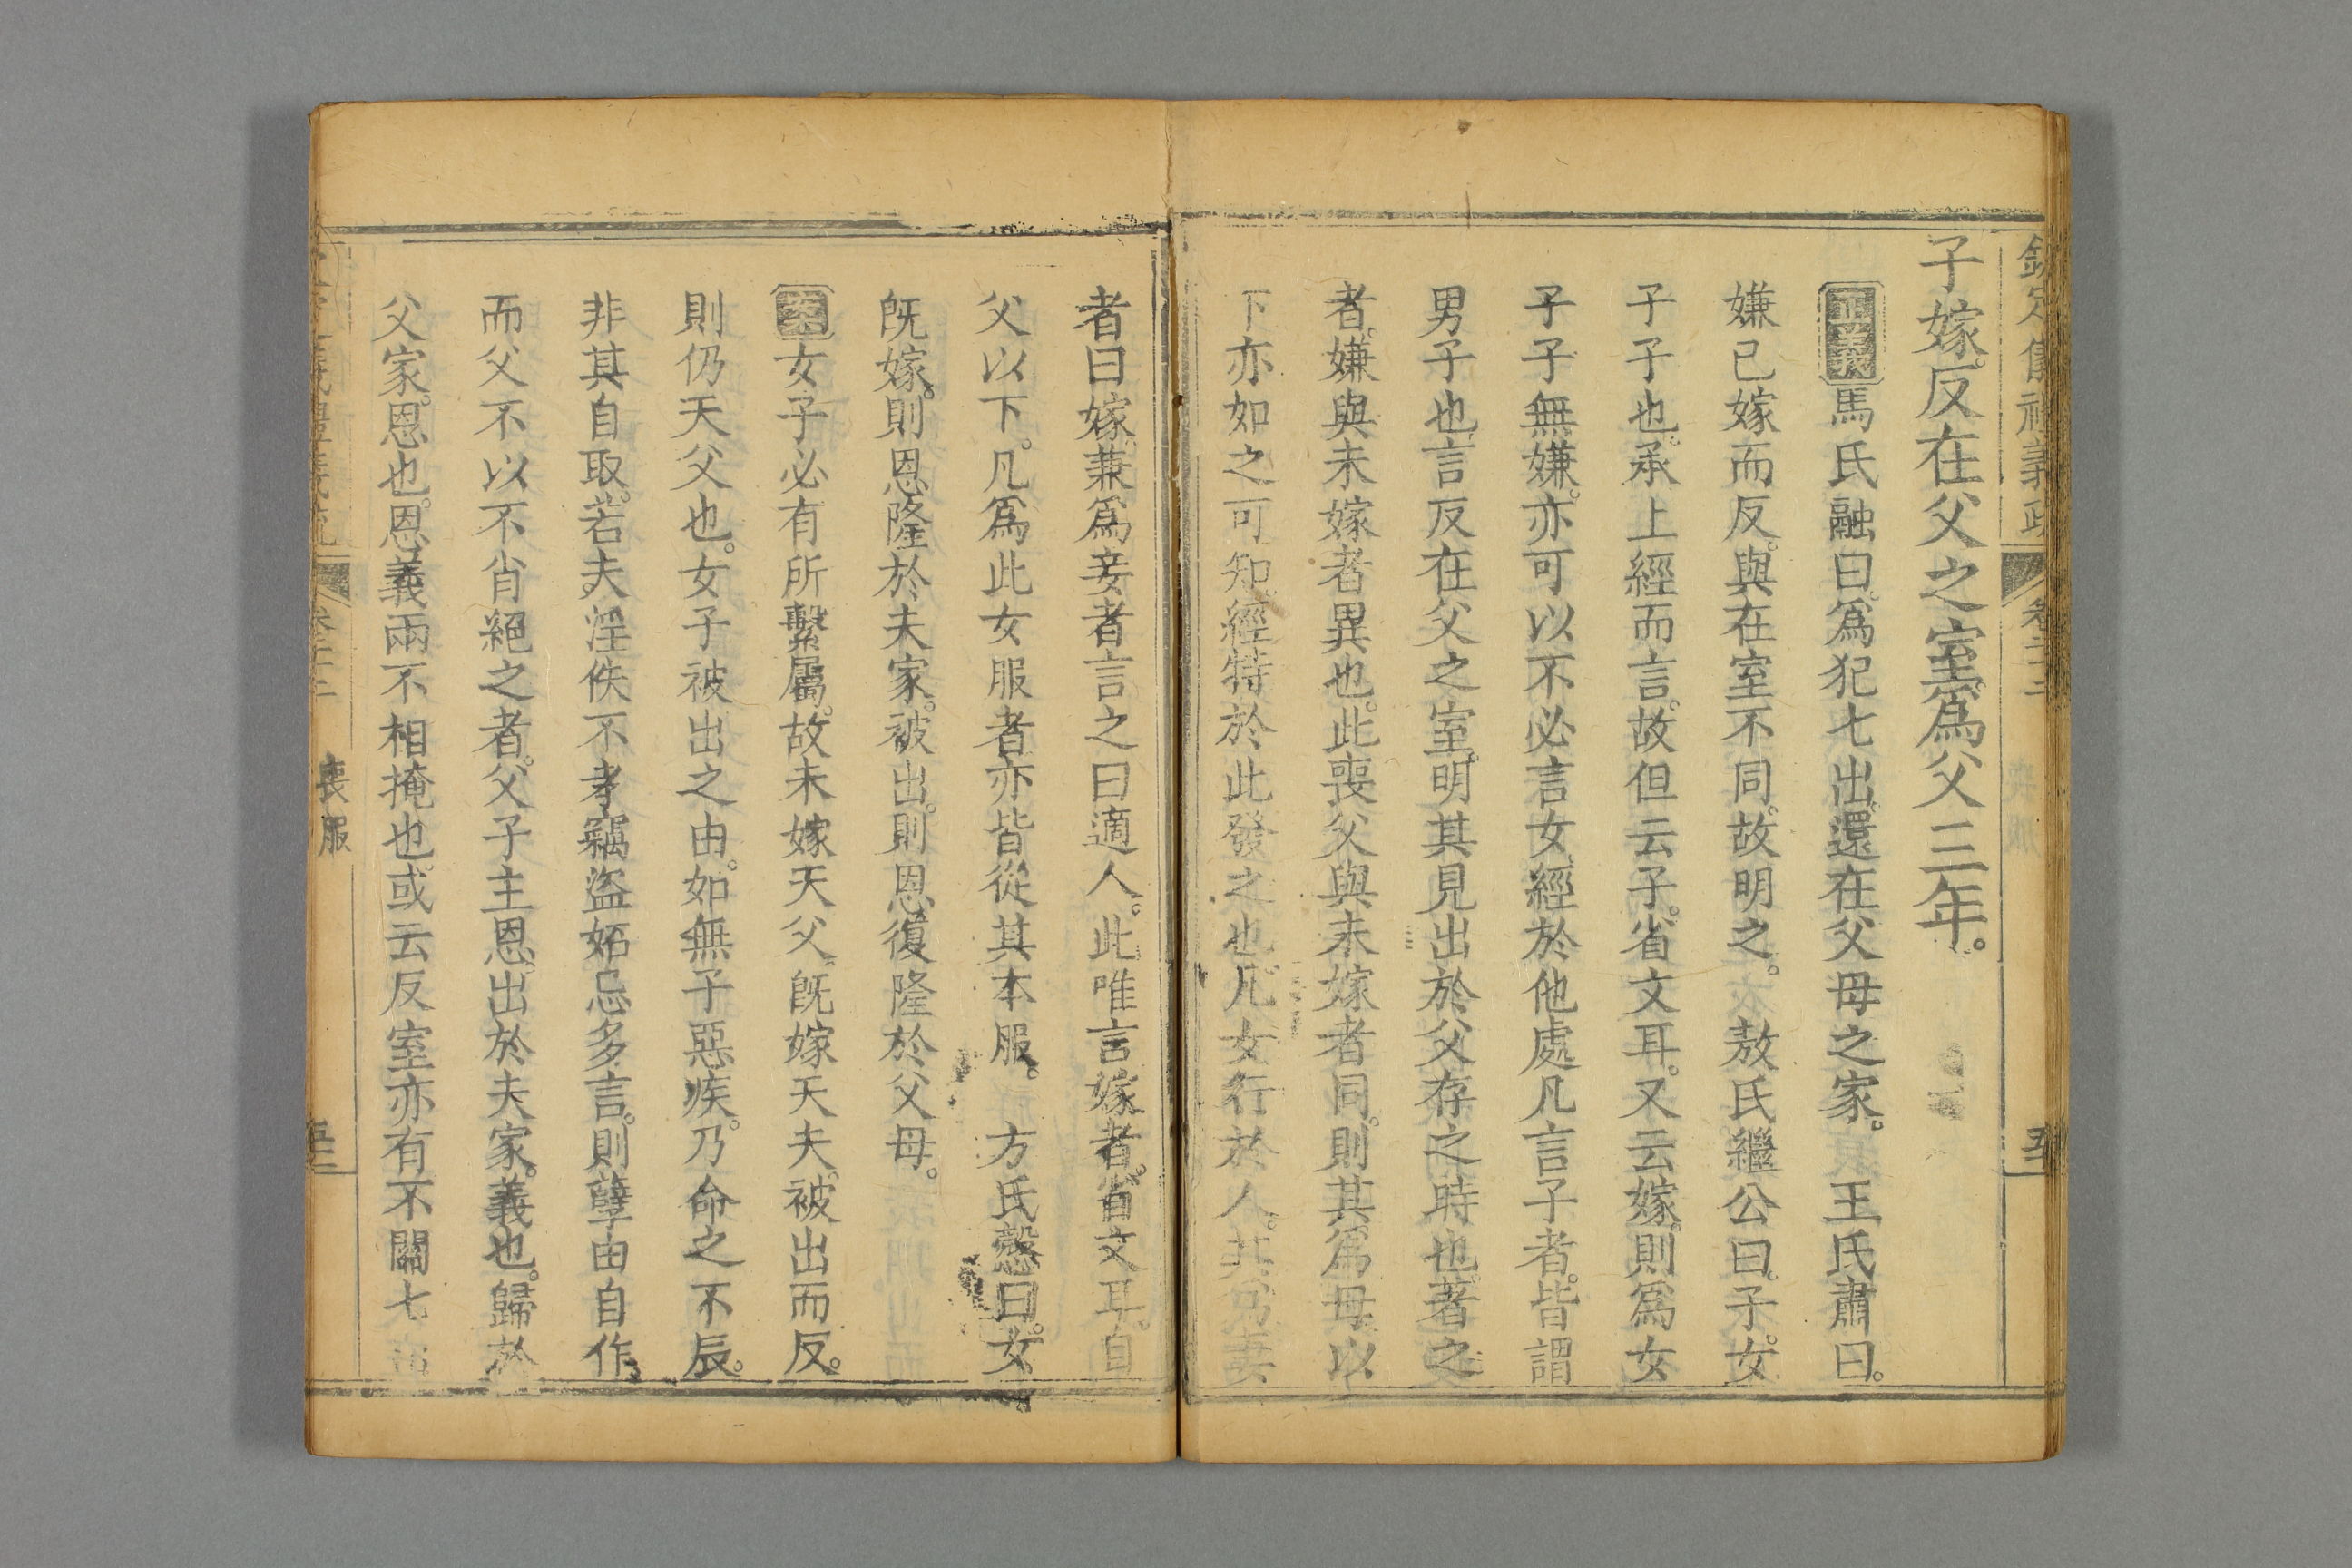 子嫁反在父之室爲父三年。
正義馬氏融曰。爲犯七出。還在父母之家。王氏肅曰。
嫌已嫁而反。與在室不同。故明之。敖氏繼公曰。子女
子子也。承上經而言。故但云子。省文耳。又云嫁。則爲女
子子無嫌。亦可以不必言女。經於他處凡言子者。皆謂
男子也。言反在父之室。明其見出於父存之時也。著之
者。嫌與未嫁者異也。此喪父與未嫁者同。則其爲母以
下亦如之可知。經特於此發之也。凡女行於人。其爲妻
者曰嫁。兼爲妾者言之曰適人。此唯言嫁者。省文耳。自
父以下。凡爲此女服者亦皆從其本服。方氏慤曰。女
旣嫁。則恩隆於夫家。被出。則恩復隆於父母。
案女子必有所繫屬。故未嫁天父。旣嫁天夫。被出而反。
則仍天父也。女子被出之由。如無子惡疾。乃命之不辰。
非其自取。若夫淫佚不孝竊盜妬忌多言。則孽由自作。
而父不以不肖絕之者。父子主恩。出於夫家。義也。歸於
父家。恩也。恩義兩不相掩也。或云反室亦有不關七
喪服